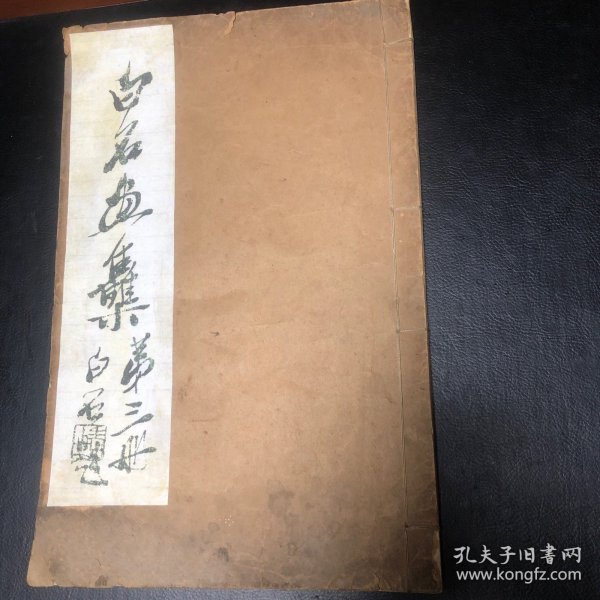 白石画集
第三册
白石
孔夫子旧書网
www.kongfz.com